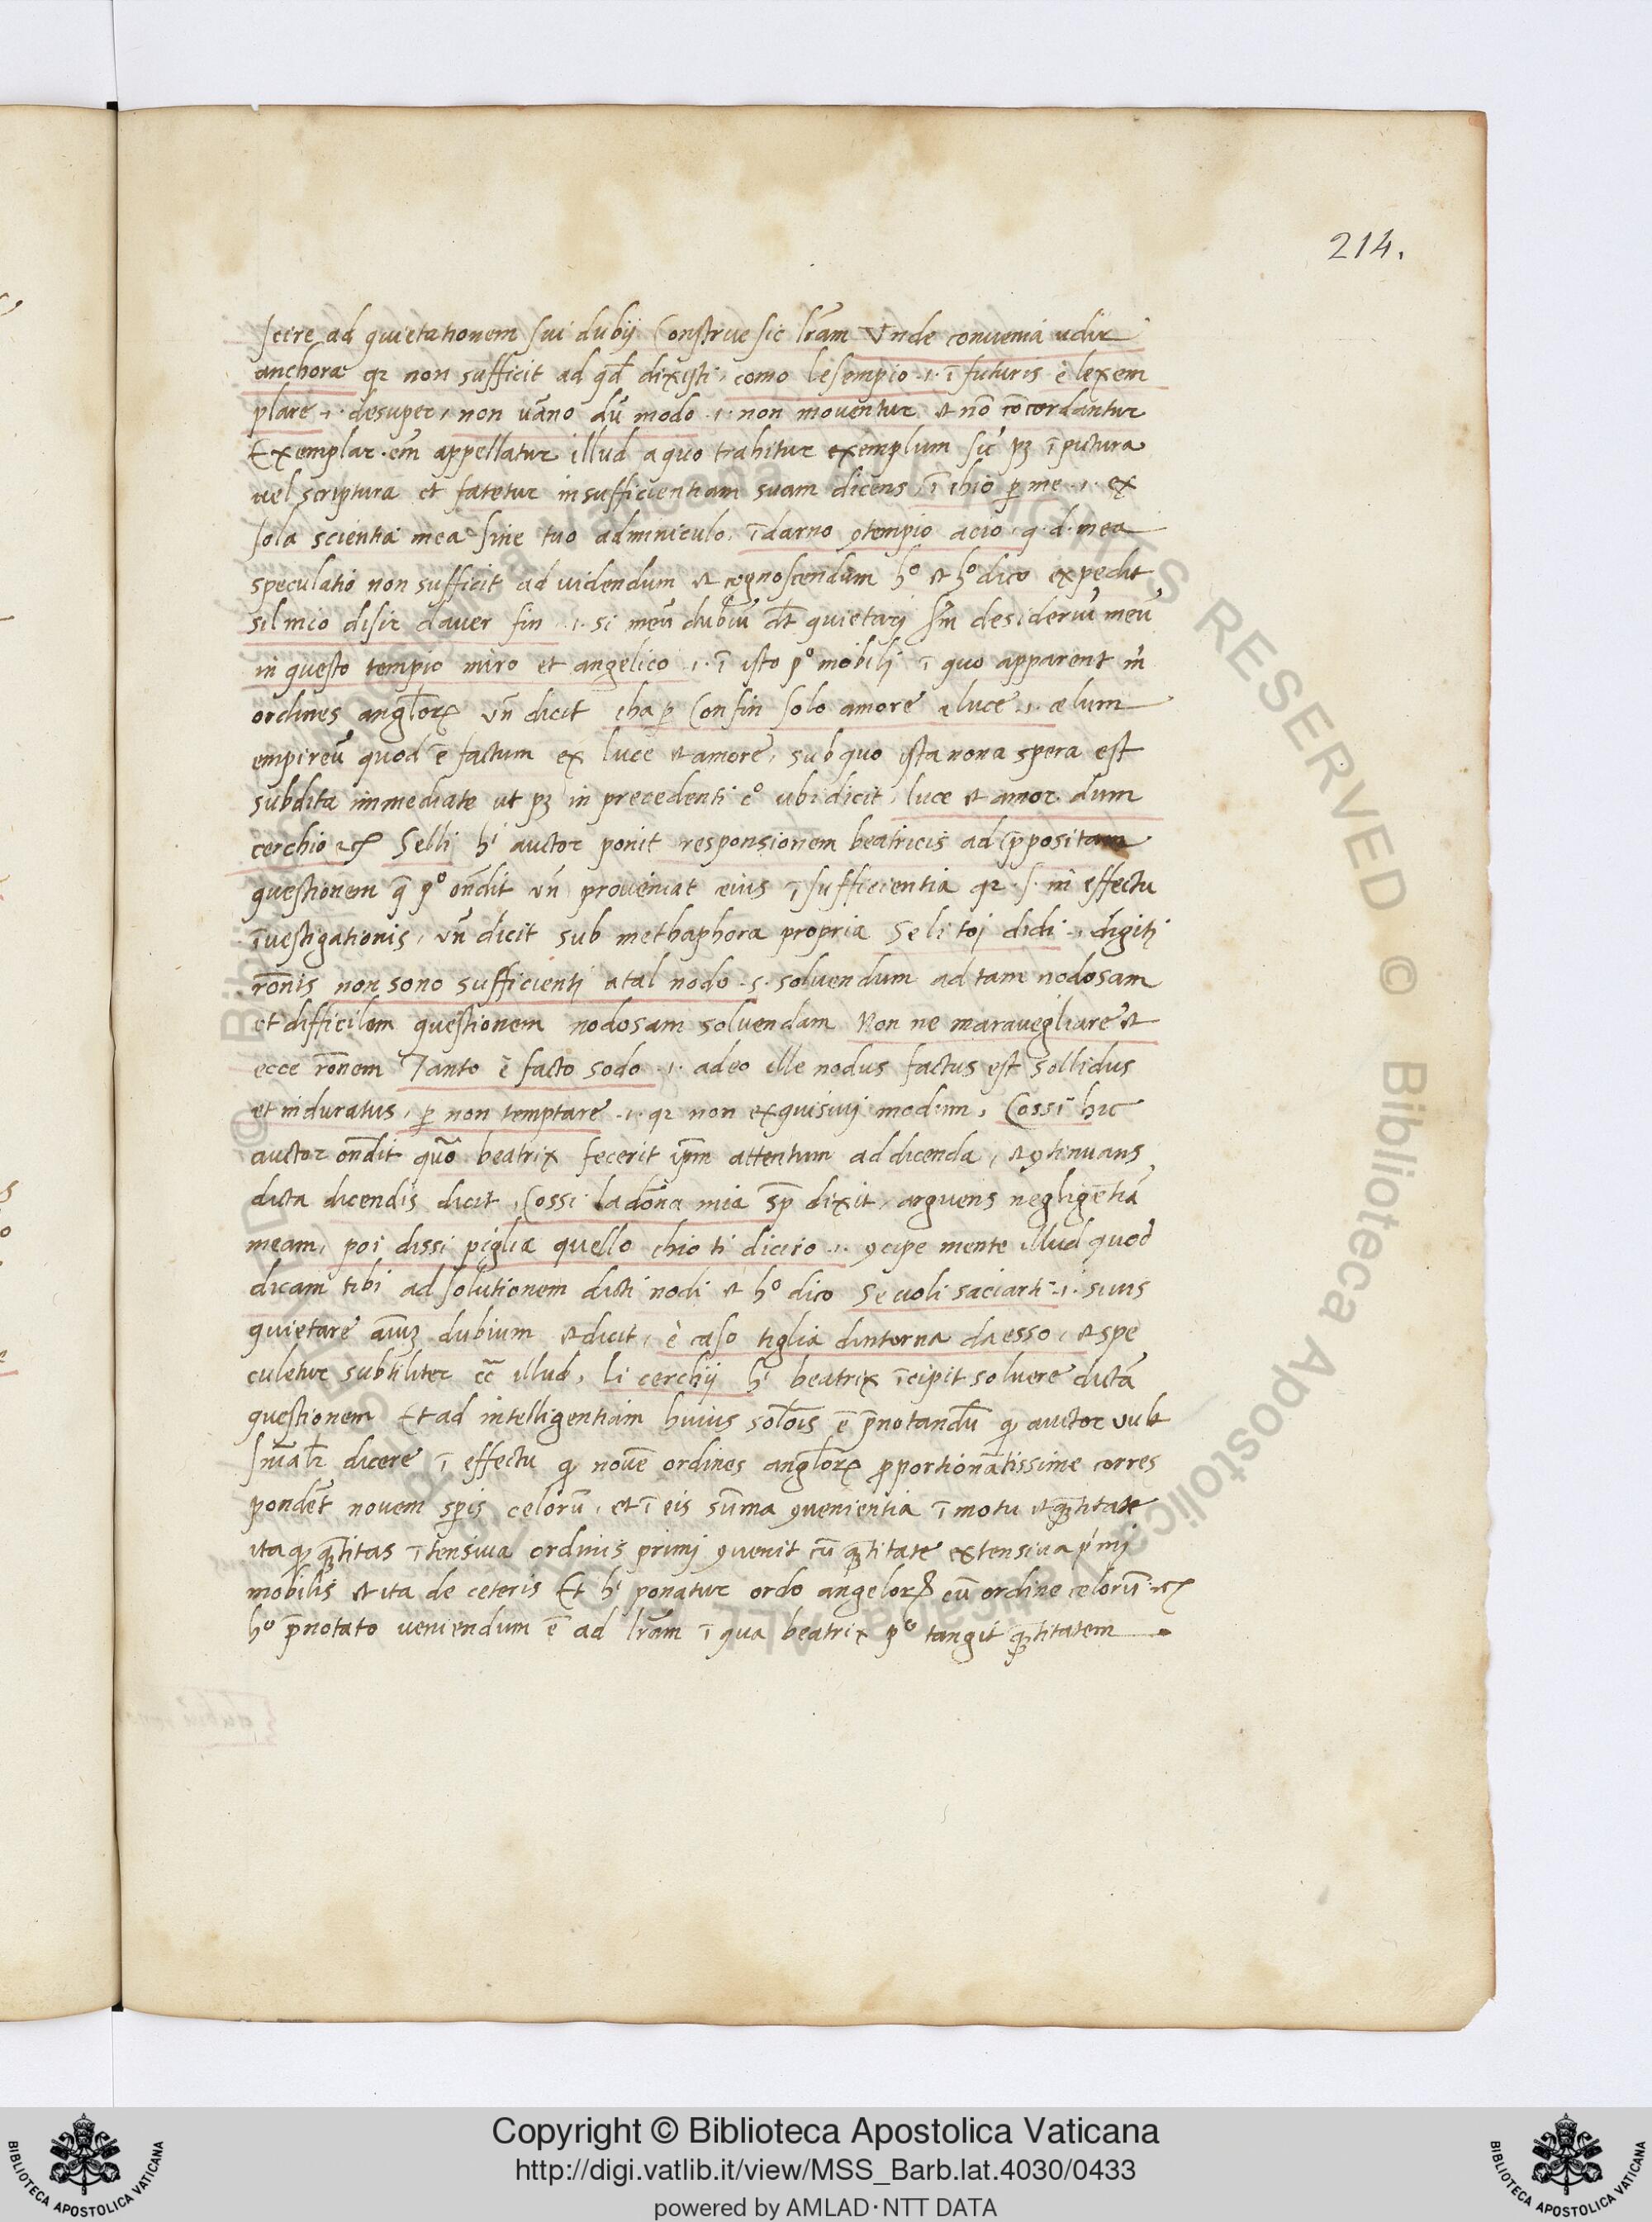 214.
scire ad quietationem sui dubij Construe sic lr̃am Vnde convenia udir
anchora qz non sufficit ad qd̃ dixisti, como lesempio .i. ĩ futuris e lexem
plare .i. desuper, non vãno dũ modo .i. non moventur et nõ cõcordantur
Exemplar em̃ appellatur illud a quo trahitur exemplum sic̃ pz ĩ pictura
vel scriptura et fatetur insufficientiam suam dicens, ĩ chio ꝑ me .i. ex
sola scientia mea sine tuo adminiculo, ĩdarno ꝯtempio acio q. d. mea
speculatio non sufficit ad videndum et cognoscendum hº et hº dico expedit
sil mio disir daver fin .i. si meũ dubiũ dt̃ quietarj sm̃ desideriũ meũ
in questo tempio miro et angelico .i. ĩ isto pº mobilj ĩ quo apparent mi
ordines anglorꝝ vñ dicit cha ꝑ Confin solo amore e luce .i. celum
empireũ quod ẽ factum ex luce et amore, sub quo ista nona spera est
subdita immediate ut pz in precedenti cº ubi dicit, luce et amor dum
cerchio etc Selli hⁱ auctor ponit responsionem beatricis ad p̃positam
questionem q̃ pº ondit vñ proveniat eius ĩsufficientia qz .s. in effectu
ĩvestigationis, vñ dicit sub methaphora propria Se li toj didi .i. digitj
rõnis non sono sufficientj a tal nodo .s. solvendum ad tam nodosam
et difficilem questionem nodosam solvendam Non ne maravegliare et
ecce rõnem Tanto è facto sodo .i. adeo ille nodus factus est sollidus
et induratus, ꝑ non temptare .i. qz non exquisivj modum, Cossi hic
auctor ondit quõ beatrix fecerit ip̃m attentum ad dicenda, et ꝯtinuans
dicta dicendis dicit, Cossi la dõna mia sp̃ dixit, arguens negligẽtiã
meam, poi dissi piglia quello chio ti diciro .i. ꝯcipe mente illud quod
dicam tibi ad solutionem dicti nodi et hº dico Se voli saciarti .i. si vis
quietare aĩuz dubium et dicit, è caso tiglia dintorna da esso, et spe
culetur subtiliter cc̃ illud, Li cerchij hⁱ beatrix ĩcipit solvere dictã
questionem Et ad intelligentiam huius solõis ẽ p̃notandũ ꝙ auctor vult
dicere ĩ effectu ꝙ novẽ ordines anglorꝝ ꝓportionatissime corres
pondẽt novem spis celorũ, et ĩ eis sũma ꝯvenientia ĩ motu et quãtitate
ita ꝙ quãtitas ĩtensiva ordinis primj ꝯvenit cũ quãtitate extensiva pⁱmj
mobilis et ita de ceteris Et hⁱ ponatur ordo angelorꝝ cũ ordine celorũ etc
hº p̃notato veniendum ẽ ad lr̃am ĩ qua beatrix pº tangit quãtitatem
© Biblioteca Apostolica Vaticana ALL RIGHTS RESERVED
BIBLIOTECA APOSTOLICA VATICANA
Copyright © Biblioteca Apostolica Vaticana
http://digi.vatlib.it/view/MSS_Barb.lat.4030/0433
powered by AMLAD · NTT DATA
BIBLIOTECA APOSTOLICA VATICANA